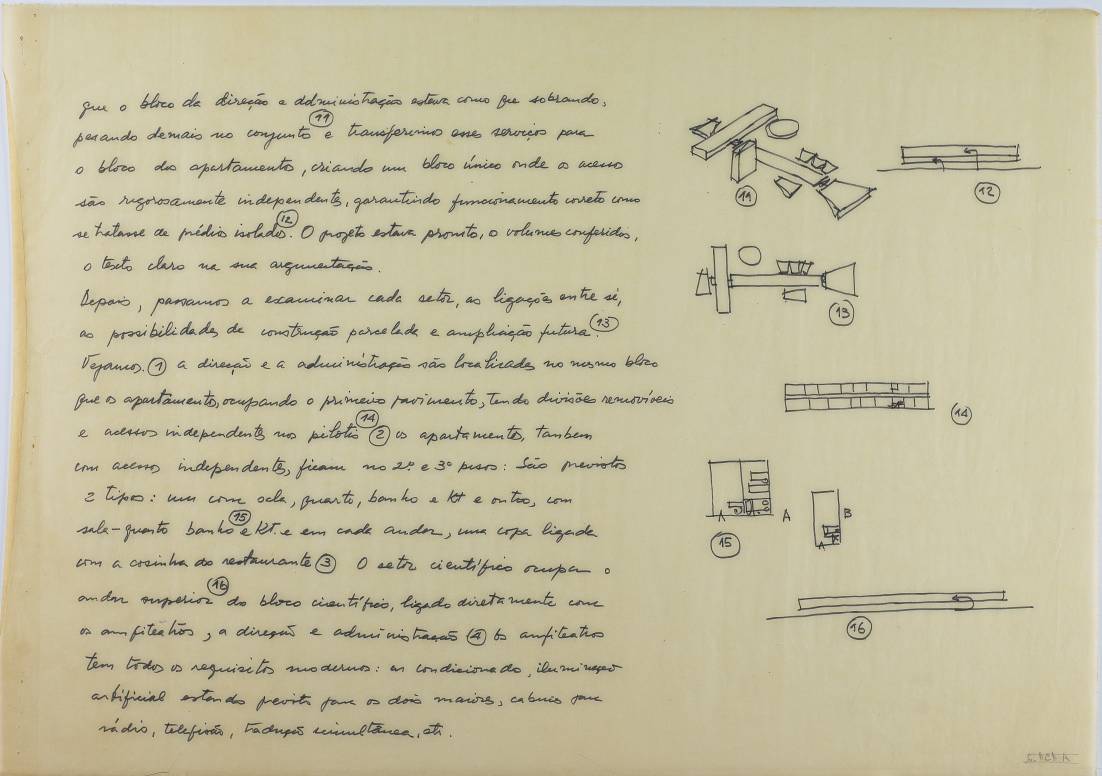 que o bloco da direção e administração estava como que sobrando,
pesando demais no conjunto (11) e transferimos esses serviços para
o bloco dos apartamentos, criando um bloco único onde os acessos
são rigorosamente independentes, garantindo funcionamento correto como
se tratasse de prédios isolados. (12) O projeto estava pronto, os volumes conferidos,
o texto claro na sua argumentação.
Depois, passamos a examinar cada setor, as ligações entre si,
as possibilidades de construção parcelada e ampliação futura. (13)
Vejamos. (1) a direção e a administração são localizadas no mesmo bloco
que os apartamentos, ocupando o primeiro pavimento, tendo divisões removíveis
e acessos independentes nos pilotis (14) (2) os apartamentos, tambem
com acessos independentes, ficam no 2º e 3º pisos: São previstos
2 tipos: um com sala, quarto, banho e kt e outro, com
sala-quarto banho (15) e kt. e em cada andar, uma copa ligada
com a cosinha do restaurante (3) O setor científico ocupa o
andar superior (16) do bloco científico, ligado diretamente com
os anfiteatros, a direção e administração (4) Os anfiteatros
tem todos os requisitos modernos: ar condicionado, iluminação
artificial estando previsto para os dois maiores, cabines para
rádio, televisão, tradução simultânea, etc.
11
12
13
14
A
A
B
A
15
16